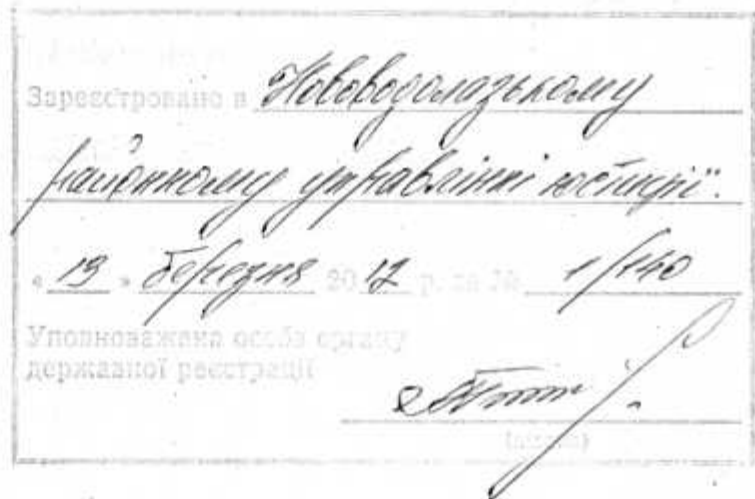 Зареєстровано в Нововодолазькому
районному управлінні юстиції.
« 19 » березня 20 12 р. за № 1/140
Уповноважена особа органу
державної реєстрації
(підпис)